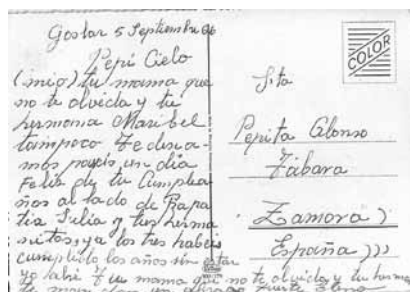 Goslar 5 Septiembre 66
Pepi Cielo
(mio) tu mama que
no te olvida y tu
hermania Maribel
tampoco te desea-
mos paseis un dia
Felis de tu Cumplea-
ños al lado de Papa
tia Julia y tus herma
nitos, ya los tres habeis
cumplido los años sin estar
yo tu mama que no te olvida y tu herma
un abrazo fuerte
COLOR
Srta
Pepita Alonso
Tábara
Zamora)
España)))